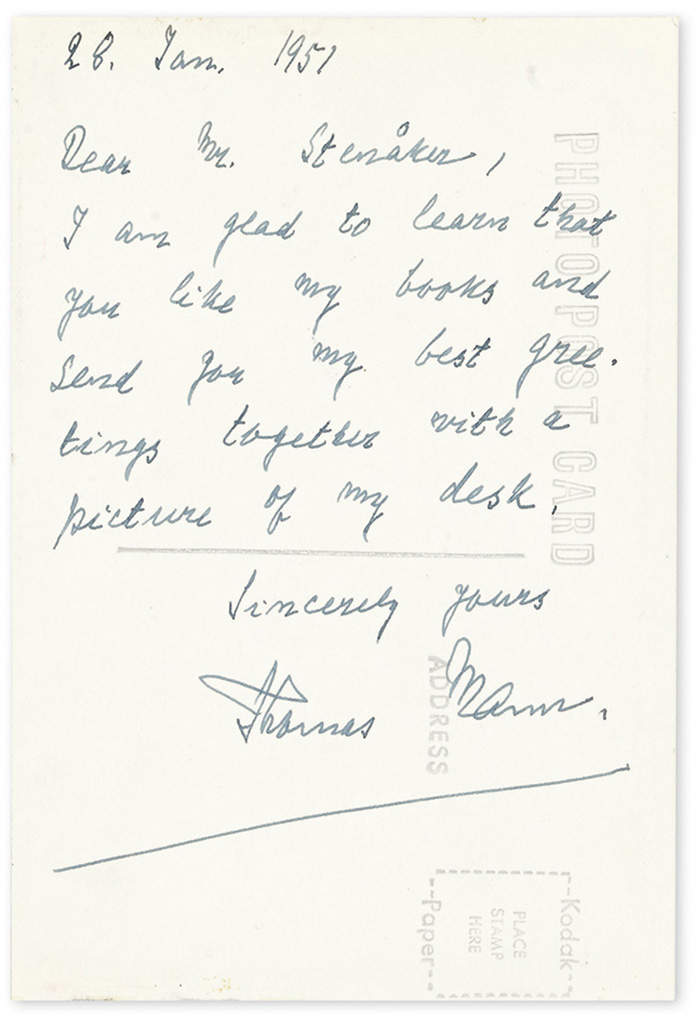 26. Jan. 1951
Dear Mr. Stenåker,
I am glad to learn that
you like my books and
send you my best gree-
tings together with a
picture of my desk.
Sincerely yours
Thomas Mann.
PHOTO POST CARD
ADDRESS
Kodak
PLACE
STAMP
HERE
Paper